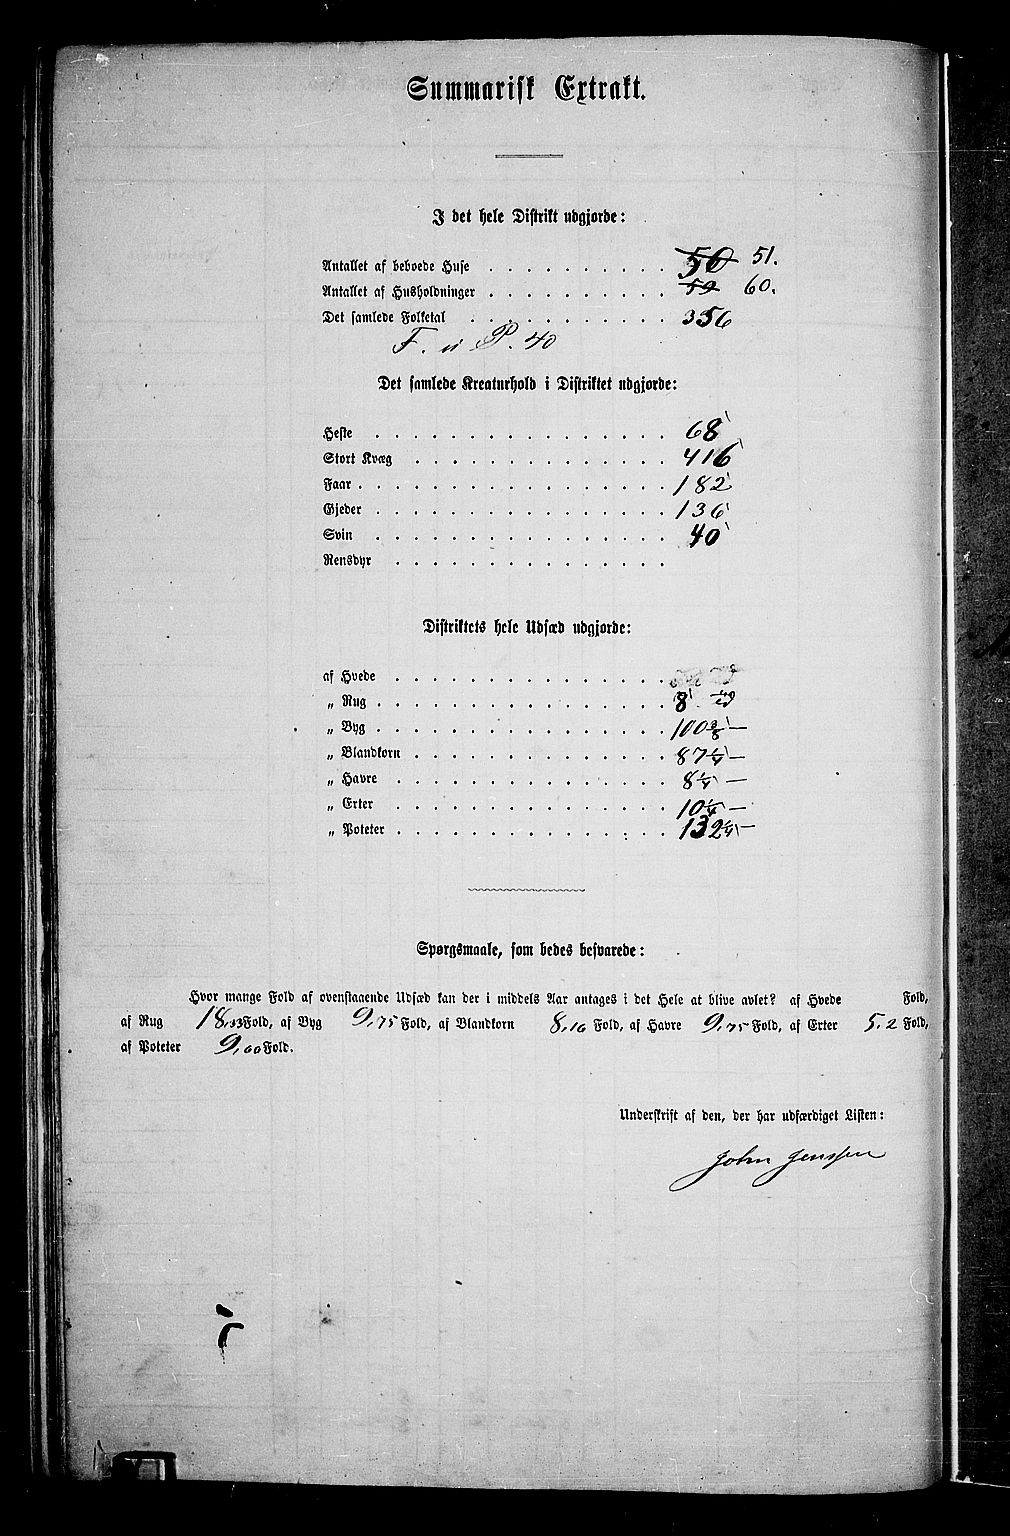 Summarisk Extrakt.
I det hele Distrikt udgjorde:
Antallet af beboede Huse . . . . . . . . . . 50 51.
Antallet af Husholdninger . . . . . . . . . . 59 60.
Det samlede Folketal . . . . . . . . . . . 356
F. P. 40
Det samlede Kreaturhold i Distriktet udgjorde:
Heste . . . . . . . . . . . . . . . . 68
Stort Kvæg . . . . . . . . . . . . . . 416
Faar . . . . . . . . . . . . . . . . . 182
Gjeder . . . . . . . . . . . . . . . . 136
Svin . . . . . . . . . . . . . . . . 40
Rensdyr . . . . . . . . . . . . . . .
Distriktets hele Udsæd udgjorde:
af Hvede . . . . . . . . . . . . . . .
„ Rug . . . . . . . . . . . . . . . . 8
„ Byg . . . . . . . . . . . . . . . . 100 3/8 —
„ Blandkorn . . . . . . . . . . . . . . 87 1/4 —
„ Havre . . . . . . . . . . . . . . . 8 1/4 —
„ Erter . . . . . . . . . . . . . . . 10 1/4 —
„ Poteter . . . . . . . . . . . . . . . 132 1/4 —
Spørgsmaale, som bedes besvarede:
Hvor mange Fold af ovenstaaende Udsæd kan der i middels Aar antages i det Hele at blive avlet? af Hvede Fold,
af Rug 18,33 Fold, af Byg 9,75 Fold, af Blandkorn 8,16 Fold, af Havre 9,75 Fold, af Erter 5,2 Fold,
af Poteter 9,60 Fold.
Underskrift af den, der har udfærdiget Listen:
John Jenssen